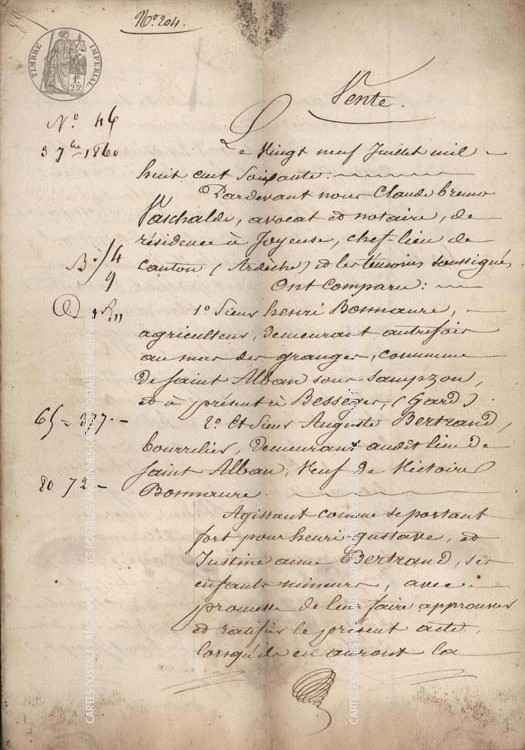 N.° 204.
TIMBRE IMPÉRIAL
Vente.
N.° 46
3 7bre 1860
Le Vingt neuf Juillet mil
huit cent soixante.
Pardevant nous Claude bruno
Paschalde, avocat et notaire, de
résidence à Joyeuse, chef-lieu de
canton (Ardèche) et les témoins soussignés,
Ont comparu:
1° Sieur henri Bonnaure,
agriculteur, demeurant autrefois
au mas des granges, commune
de saint Alban sous sampzon,
et à présent à Bessèges, (Gard).
65 = 337. -
2° Et Sieur Auguste Bertrand,
bourrelier, demeurant audit lieu de
saint Alban, Veuf de Victoire
80 72 -
Bonnaure.
Agissant comme se portant
fort pour henri-gustave, et
Justine anne Bertrand, ses
enfants mineurs, avec
promesse de leur faire approuver
et ratifier le présent acte
lorsqu'ils en auront la